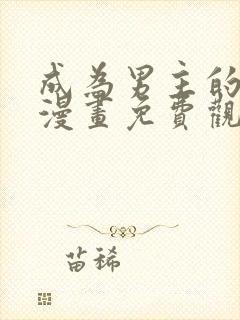 成為男主的
漫畫免費觀
苗稀